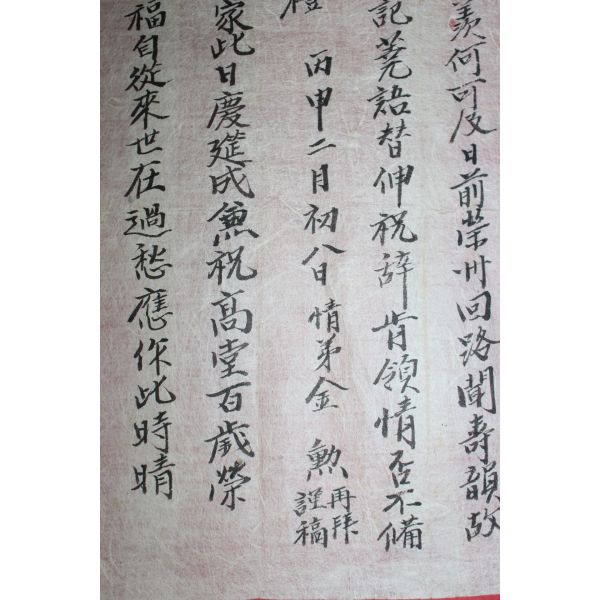 羨何可及日前榮州回路聞壽韻故
記荒語替伸祝辞肯領情否不備
丙申二月初八日情弟金勲再拜謹稿
家此日慶筵成兼祝高堂百歲榮
福自從來世在過愁應作此時晴